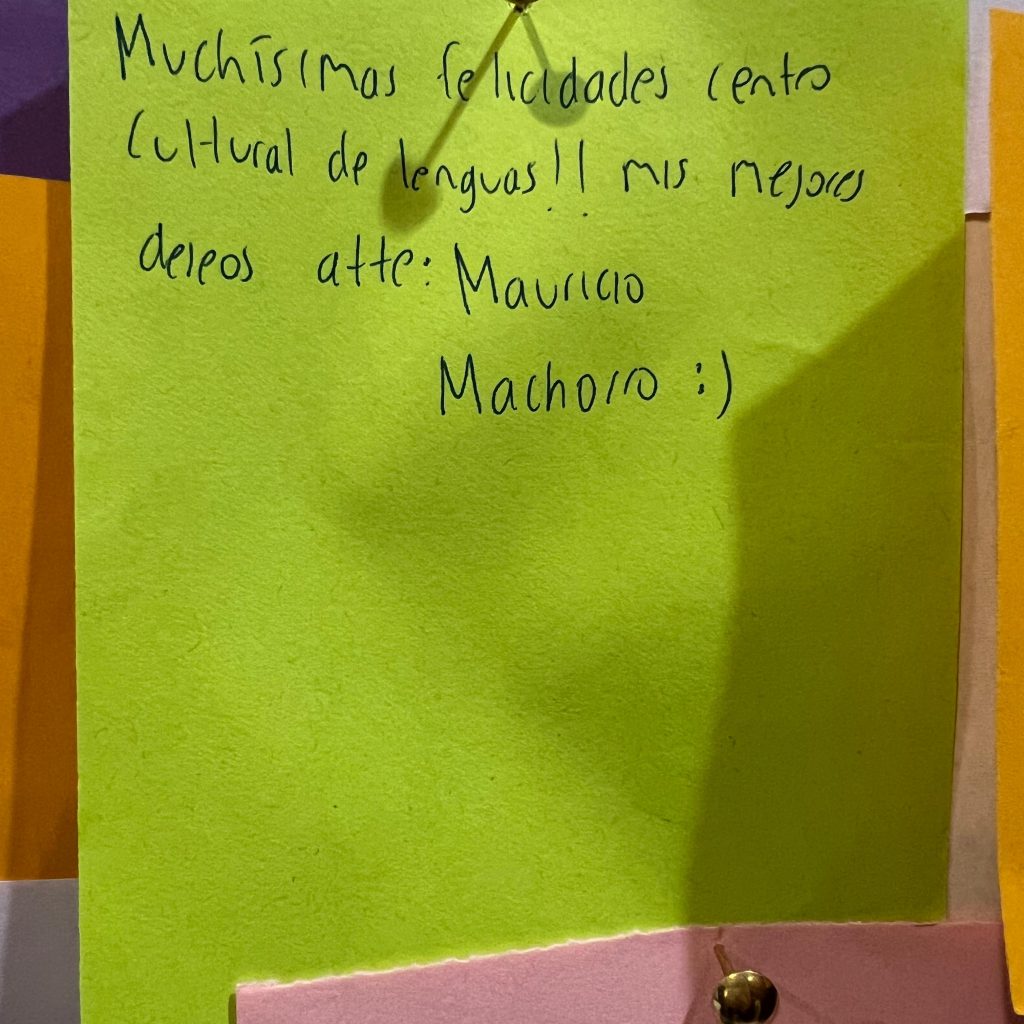 Muchísimas felicidades centro
Cultural de lenguas!! mis mejores
deseos atte: Mauricio
Machorro :)